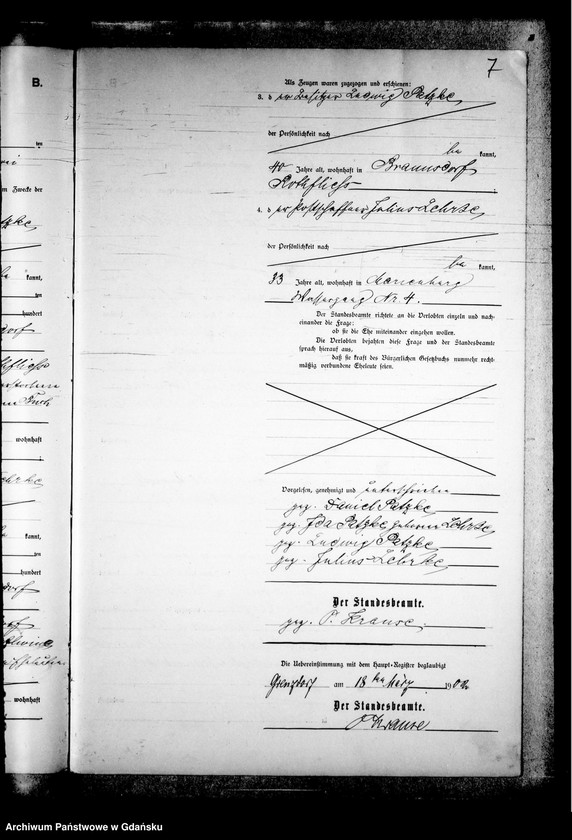 B.
7
Als Zeugen waren zugezogen und erschienen:
3. der Besitzer Ludwig Patzke,
der Persönlichkeit nach
be kannt,
40 Jahre alt, wohnhaft in Braunsdorf
Rothfließ
4. der Postschaffner Julius Lehrke,
der Persönlichkeit nach
be kannt,
33 Jahre alt, wohnhaft in Marienburg
Wassergang Nr 4.
Der Standesbeamte richtete an die Verlobten einzeln und nach-
einander die Frage:
ob sie die Ehe miteinander eingehen wollen.
Die Verlobten bejahten diese Frage und der Standesbeamte
sprach hierauf aus,
daß sie kraft des Bürgerlichen Gesetzbuchs nunmehr recht-
mäßig verbundene Eheleute seien.
Vorgelesen, genehmigt und unterschrieben
gez. Daniel Patzke
gez. Ida Patzke geborene Lehrke,
gez. Ludwig Patzke,
gez. Julius Lehrke,
Der Standesbeamte.
gez. P. Krause.
Die Uebereinstimmung mit dem Haupt-Register beglaubigt
am 18 ten März 1902
Der Standesbeamte.
P Krause
ten
m Zwecke der
tzke,
kannt,
ten
hundert
dorf
wohnhaft
ehrke
kannt,
ten
hundert
dorf
wohnhaft
Archiwum Państwowe w Gdańsku